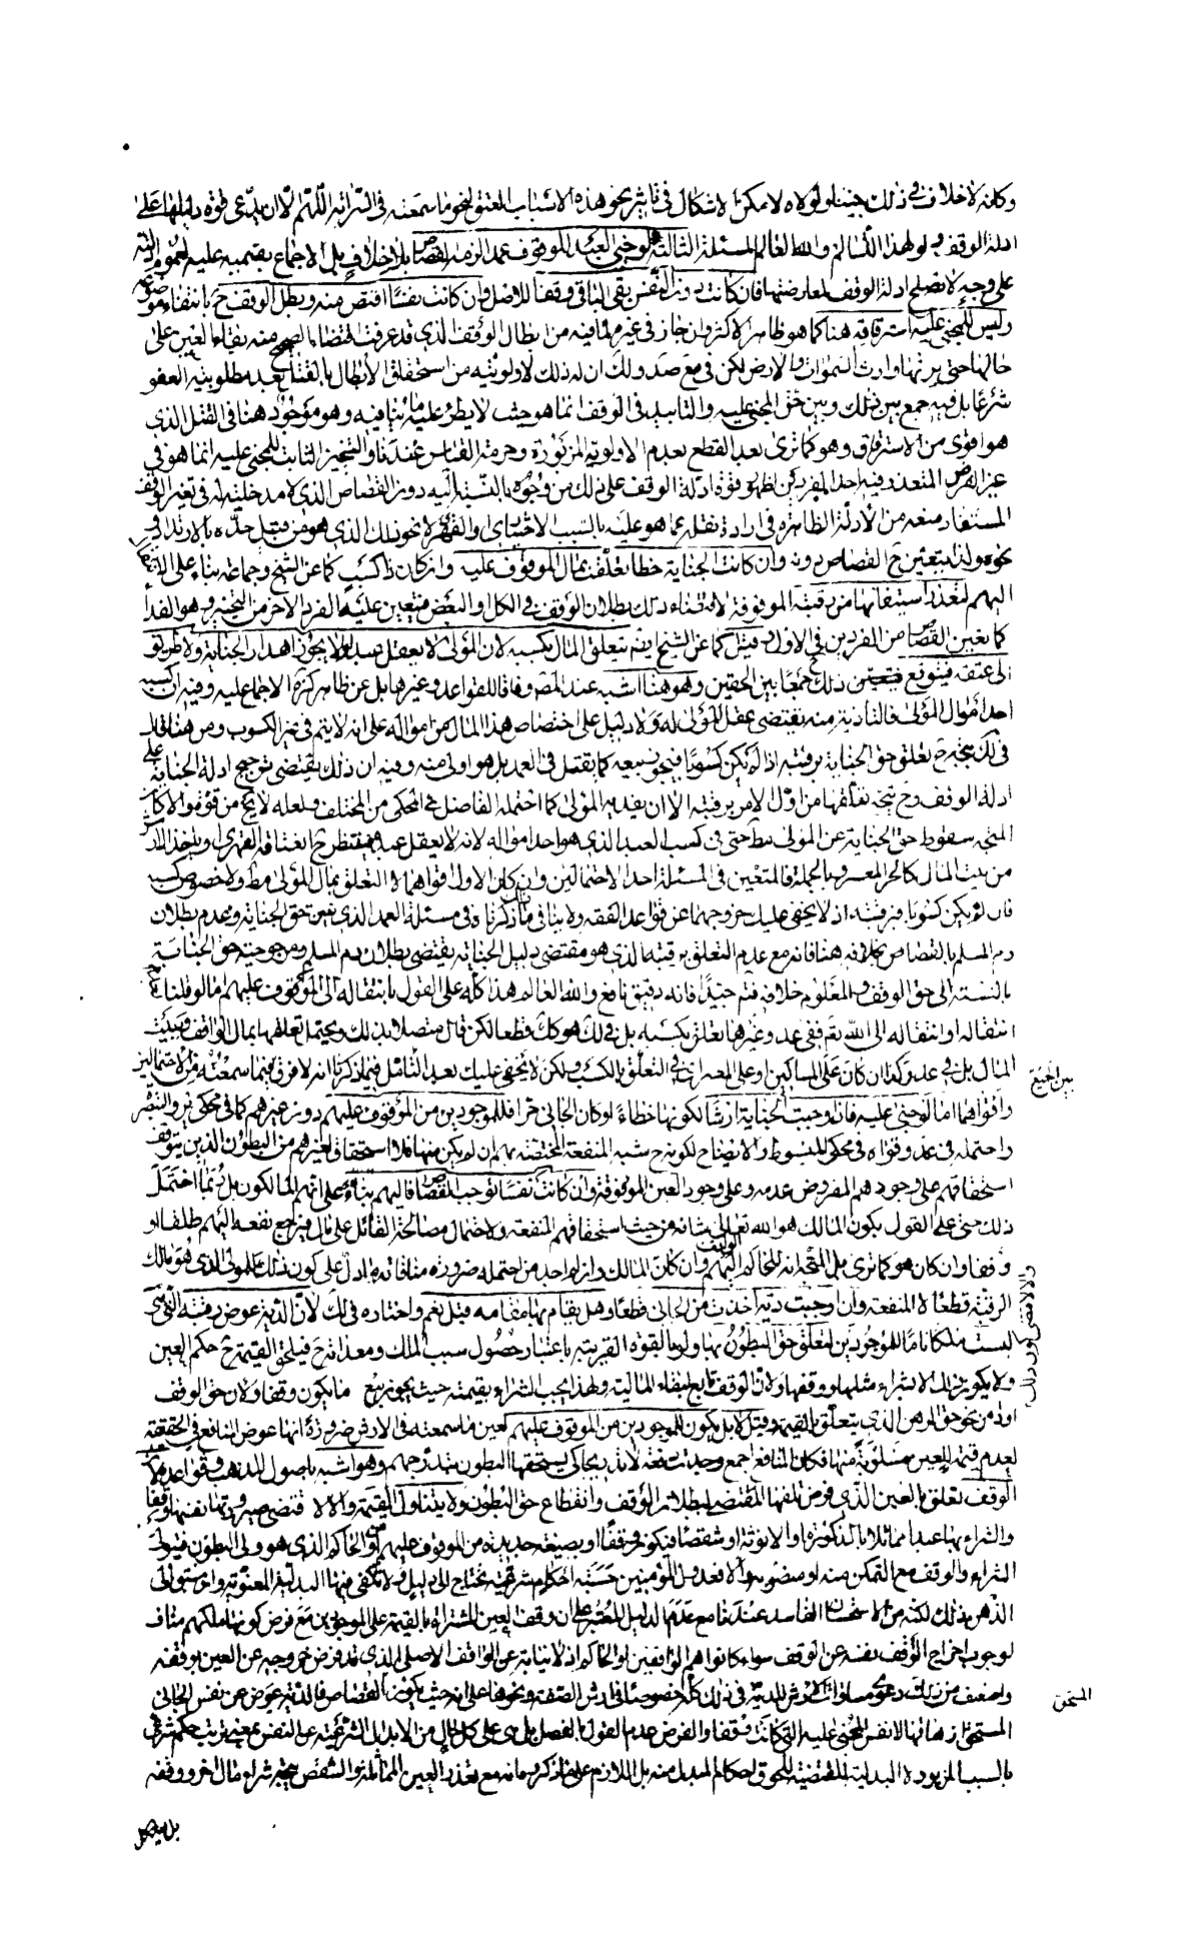 وكانه لا خلاف في ذلك بيننا ولولاه لامكن الاشكال في تاثير نحو هذه الاسباب العتق لنحو ما سمعته في السراية اللهم الا ان يدعى قوة دليلها على
ادلة الوقف ولهذا والله العالم المسئلة الثالثة لو جنى العبد الموقوف عمدا لزمه القصاص بلا خلاف بل الاجماع بقسميه عليه لعموم
على وجه لا تصلح ادلة الوقف لمعارضتها فان كانت دون النفس بقى الباقى وقفا للاصل وان كانت نفسا اقتص منه وبطل الوقف ح بانتفاء موضوعه
وليس للمجنى عليه استرقاقه هنا كما هو ظاهر الاكثر وان جاز في غيره لمنافيه من ابطال الوقف الذى قد عرفت اقتضاء الصحيح منه بقاء العين على
حالها حتى يرثها وارث السموات والارض لكن في مع صد ولك ان له ذلك لاولويته من استحقاق الابطال بالقتل بعد مطلوبيته العفو
شرعا بل فيه جمع بين ذلك وبين حق المجنى عليه والتابيد في الوقف انما هو حيث لا يطرء عليه ما ينافيه وهو موجود هنا في القتل الذى
هو اقوى من الاسترقاق وهو كما ترى بعد القطع بعدم الاولوية المزبورة وحرمة القياس عندنا والتخيير الثابت للمجنى عليه انما هو في
غير الفرض المتعذر فيه احد الفردين لظهور قوة ادلة الوقف على ذلك من وجوه بالنسبة اليه دون القصاص الذى لا مدخلية له في تغير الوقف
المستفاد منعه من الادلة الظاهرة في ارادة نقله عما هو عليه بالسبب الاختيارى والقهرى لا نحو ذلك الذى هو من قبيل حده بالارتداد و
نحوه ولذا يتعين ح القصاص دونه وان كانت الجناية خطا تعلقت بمال الموقوف عليه وان كان ذا كسب كما عن الشيخ وجماعة بناء على
اليهم لتعذر استيفائها من رقبته الموقوفة لاقتضاء ذلك بطلان الوقف في الكل او البعض فيتعين عليه الفرد الاخر من التخيير وهو الفداء
كما تعين القصاص من الفردين في الاول وقيل كما عن الشيخ ايضا يتعلق المال بكسبه لان المولى لا يعقل عبدا ولا يجوز اهدار الجناية ولا طريق
الى عتقه فيتوقع فيتعين ذلك ح جمعا بين الحقين وهو هنا اشبه عند المصنف وفاقا للقواعد وغيرها بل عن ظاهر كنز الاجماع عليه وفيه ان كسبه
احد اموال المولى فالتادية منه يقتضى عقل المولى له ولا دليل على اختصاص هذا المال من امواله على انه لا يتم في غير الكسوب ومن هنا قال
في لك يتجه ح تعلق حق الجناية برقبته اذا لم يكن كسوبا فيجوز بيعه كما يقتل في العمد بل هو اولى منه وفيه ان ذلك يقتضى ترجيح ادلة الجناية على
ادلة الوقف وح يتجه تعلقها من اول الامر برقبته الا ان يفديه المولى كما احتمله الفاضل في المحكى من المختلف ولعله لا يخ من قوة والا كان
المتجه سقوط حق الجناية عن المولى مط حتى في كسب العبد الذى هو احد امواله لانه لا يعقل عبده فينتظر ح انعتاقه القهرى او ياخذ الدية
من بيت المال كالحر المعسر وبالجملة فالمتعين في المسئلة احد الاحتمالين وان كان الاول اقواهما لا التعلق بمال المولى مط ولا خصوص كسبه
فان لم يكن كسوبا فبرقبته اذ لا يخفى عليك خروجهما عن قواعد الفقه ولا ينافي ما ذكرناه في مسئلة العمد الذى تعين حق الجناية وعدم بطلان
دم المسلم بالقصاص بخلافه هنا فانه مع عدم التعلق برقبته الذى هو مقتضى دليل الجناية يقتضى بطلان دم المسلم ومرجوحية حق الجناية
بالنسبة الى حق الوقف والمعلوم خلافه فتم جيدا فانه دقيق نافع والله العالم هذا كله على القول بانتقاله الى الموقوف عليهم اما لو قلنا بعدم
انتقاله او انتقاله الى الله تعالى ففى عد وغيرها تعلق بكسبه بل في لك هو كك قطعا لكن قال متصلا بذلك ويحتمل تعلقها بمال الواقف وببيت
المال بل في عد وكذا ان كان على المساكين او على المصالح في التعلق بالكسب ولكن لا يخفى عليك بعد التامل فيما ذكرنا انه لا فرق فيما سمعته من الاحتمالين
بين الجميع
واقواهما اما لو جنى عليه فان اوجبت الجناية ارشا لكونها خطاء او كان الجاني حرا فللموجودين من الموقوف عليهم دون غيرهم كما في محكى ير والتبصرة
واحتمله في عد وقواه في محكى المبسوط والايضاح لكونه ح شبه المنفعة المختصة بهم ان لم يكن منها فلا استحقاق لغيرهم من البطون الذين يتوقف
استحقاقهم على وجودهم المفروض عدمه وعلى وجود العين الموقوفة وان كانت نفسا توجب القصاص فاليهم بناء على انهم المالكون بل ربما احتمل
ذلك حتى على القول بكون المالك هو الله تعالى شانه من حيث استحقاقهم المنفعة ولاحتمال مصالحة القاتل على مال فيرجع نفعه اليهم طلقا او
وقفا وان كان هو كما ترى بل المتجه انه للحاكم اليهم وان كان المالك وان لم اجد من احتمله ضرورة منافاته ما دل على كون ذلك للمولى الذى هو مالك
الرقبة قطعا لا المنفعة وان اوجبت دية اخذت من الجانى قطعا وهل يقام بها مقامه قيل نعم واختاره في لك لان الدية عوض رقبته التى هى
ليست ملكا تاما للموجودين لتعلق حق البطون بها ولو بالقوة القريبة باعتبار حصول سبب الملك ومعداته ح فيلحق القيمة ح حكم العين
والا لاقتضى بطلان ذلك
ولا يكون ذلك الا بشراء مثلها ووقفها ولان الوقف تابع لبقاء المالية ولهذا يجب الشراء بقيمته حيث يجوز بيع ما يكون وقفا ولان حق الوقف
اولى من نحو حق الرهن الذى يتعلق بالقيمة وقيل لا بل يكون للموجودين من الموقوف عليهم لعين ما سمعته في الارش ضرورة انها عوض المنافع في الحقيقة
لعدم قيمة للعين مسلوبة منها فكان المنافع اجمع وجدت دفعة لا تدريجا كى يستحقها البطون بتدرجهم وهو اشبه باصول المذهب وقواعده لان
الوقف تعلق بالعين الذى فرض تلفها المقتضى لبطلان الوقف وانقطاع حق البطون ولا يتناول القيمة والا لاقتضى صيرورتها نفسها وقفا
والشراء بها عبدا مماثلا بالذكورة او الانوثة او شقصا فتكون وقفا او بصيغة جديدة من الموقوف عليهم او الحاكم الذى هو ولى البطون فيتولى
الشراء والوقف مع التمكن منه او منصوبه والا فعدول المؤمنين حسبة احكام شرعية تحتاج الى دليل ولا يكفى فيها البدلية المعنوية وان ستوفى
الذهن بذلك لكنه من الاستحسان الفاسد عندنا مع عدم الدليل المعتبر على ان وقف العين المشتراة بالقيمة على الموجودين مع فرض كونها ملكهم مناف
لوجوب اخراج الوقف نفسه عن الوقف سواء كانوا هم الواقفين او الحاكم اذ لا نيابة عن الواقف الاصلى الذى قد فرض خروجه عن العين بوقفه
واضعف من ذلك دعوى مساواة الارش للدية في ذلك كله خصوصا في ارش الصفة ونحوها على انه حيث يكون القصاص فالدية عوض عن نفس الجانى
المستحق ازهاقها لا نفس المجنى عليه التى كانت وقفا والفرض عدم القول بالفصل بل هى على كل حال من الابدال الشرعية عن النفس بمعنى ترتب حكم شرعى
بالسبب المزبور لا البدلية المقتضية للحوق احكام المبدل منه بل اللازم على ما ذكروه انه مع تعذر العين المماثلة والشقص يتجه شراء مال اخر ووقفه
بل مشكل